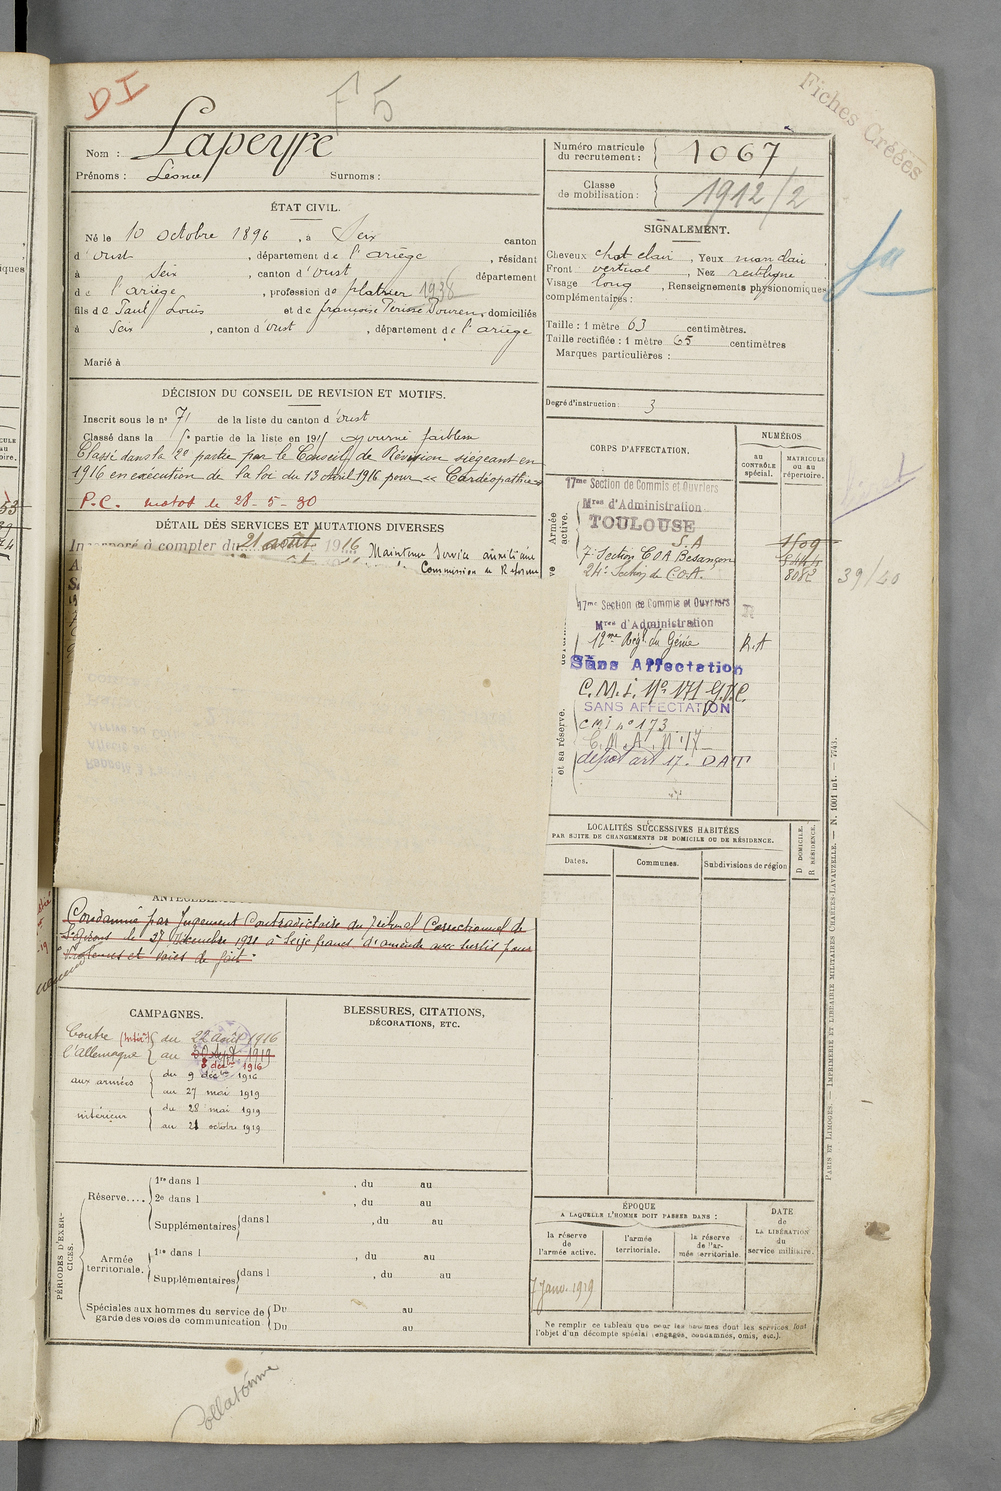 DI
F 5
Fiches Créées
Nom : Lapeyre
Prénoms : Léonce Surnoms :
Numéro matricule du recrutement : 1067
Classe de mobilisation : 1912/2
ÉTAT CIVIL.
Né le 10 octobre 1896, à Seix canton
d'oust, département de l'ariège, résidant
à Seix, canton d'oust département
de l'ariège, profession de platrier 1938
fils de Paul Louis et de françoise domiciliés
à Seix, canton d'oust, département de l'ariège
Marié à
SIGNALEMENT.
Cheveux chat clair, Yeux mar clair
Front vertical, Nez rectiligne
Visage long, Renseignements physionomiques
complémentaires :
Taille : 1 mètre 63 centimètres.
Taille rectifiée : 1 mètre 65 centimètres
Marques particulières :
Degré d'instruction : 3
DÉCISION DU CONSEIL DE REVISION ET MOTIFS.
Inscrit sous le no 71 de la liste du canton d'oust
Classé dans la 5e partie de la liste en 1915 ajourné faiblesse
Classé dans la 2e partie par le Conseil de Révision siégeant en
1916 en exécution de la loi du 13 Avril 1916 pour « Cardiopathie »
P.C. motos le 28-5-30
DÉTAIL DES SERVICES ET MUTATIONS DIVERSES
Incorporé à compter du 21 août 1916 Maintenu Service auxiliaire
Commission de Réforme
CORPS D'AFFECTATION.
NUMÉROS
au CONTRÔLE spécial.
MATRICULE ou au répertoire.
Armée active.
17me Section de Commis et Ouvriers
Mres d'Administration
TOULOUSE
S.A 1509
7e Section C.O.A. Besançon
24e Section de C.O.A. 8082
39/40
et sa réserve.
17me Section de Commis et Ouvriers
Mres d'Administration
12me Régt du Génie R.A
Sans Affectation
C.M.I. No 171
SANS AFFECTATION
CMI no 173
C.M.A. No 17
dépot art 17. DAT
LOCALITÉS SUCCESSIVES HABITÉES
PAR SUITE DE CHANGEMENTS DE DOMICILE OU DE RÉSIDENCE.
Dates. Communes. Subdivisions de région
D DOMICILE.
R RÉSIDENCE.
Condamné par Jugement Contradictoire du Tribunal Correctionnel de
St Girons le 27 Décembre 1921 à Seize francs d'amende avec sursis pour
Violences et voies de fait.
CAMPAGNES.
Contre (Intér) du 22 août 1916
l'allemagne au 30 sept 1919
8 déc 1916
aux armées du 9 déc 1916
au 27 mai 1919
intérieur du 28 mai 1919
au 21 octobre 1919
BLESSURES, CITATIONS,
DÉCORATIONS, ETC.
PÉRIODES D'EXERCICES.
Réserve....
1re dans l , du au
2e dans l , du au
Supplémentaires dans l , du au
Armée territoriale.
1re dans l , du au
Supplémentaires dans l , du au
Spéciales aux hommes du service de garde des voies de communication
Du au
Du au
ÉPOQUE
A LAQUELLE L'HOMME DOIT PASSER DANS :
la réserve de l'armée active.
l'armée territoriale.
la réserve de l'armée territoriale.
DATE de LA LIBÉRATION du service militaire.
7 janv. 1919
Ne remplir ce tableau que pour les hommes dont les services font
l'objet d'un décompte spécial (engagés, condamnés, omis, etc.).
PARIS ET LIMOGES. — IMPRIMERIE ET LIBRAIRIE MILITAIRES CHARLES-LAVAUZELLE. — N. 1001 int. — 7743.
Collationné